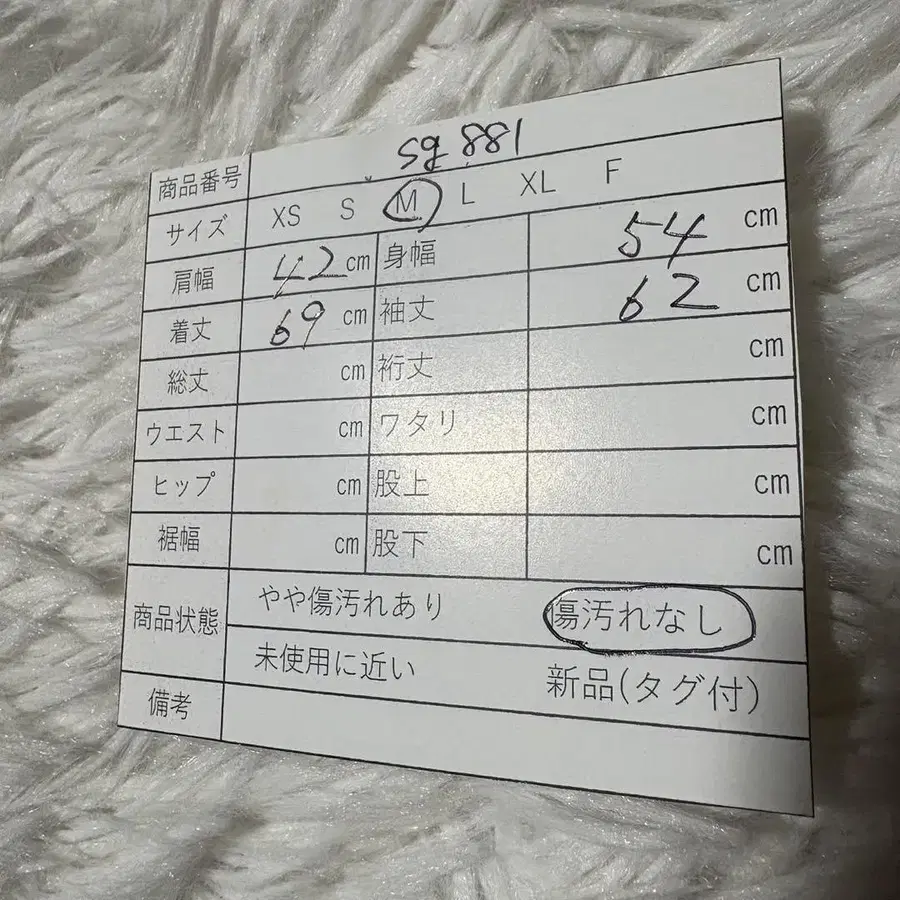 商品番号
サイズ XS S M L XL F
肩幅 42 cm 身幅 54 cm
着丈 69 cm 袖丈 62 cm
総丈 cm 裄丈 cm
ウエスト cm ワタリ cm
ヒップ cm 股上 cm
裾幅 cm 股下 cm
商品状態 やや傷汚れあり 傷汚れなし
未使用に近い 新品(タグ付)
備考